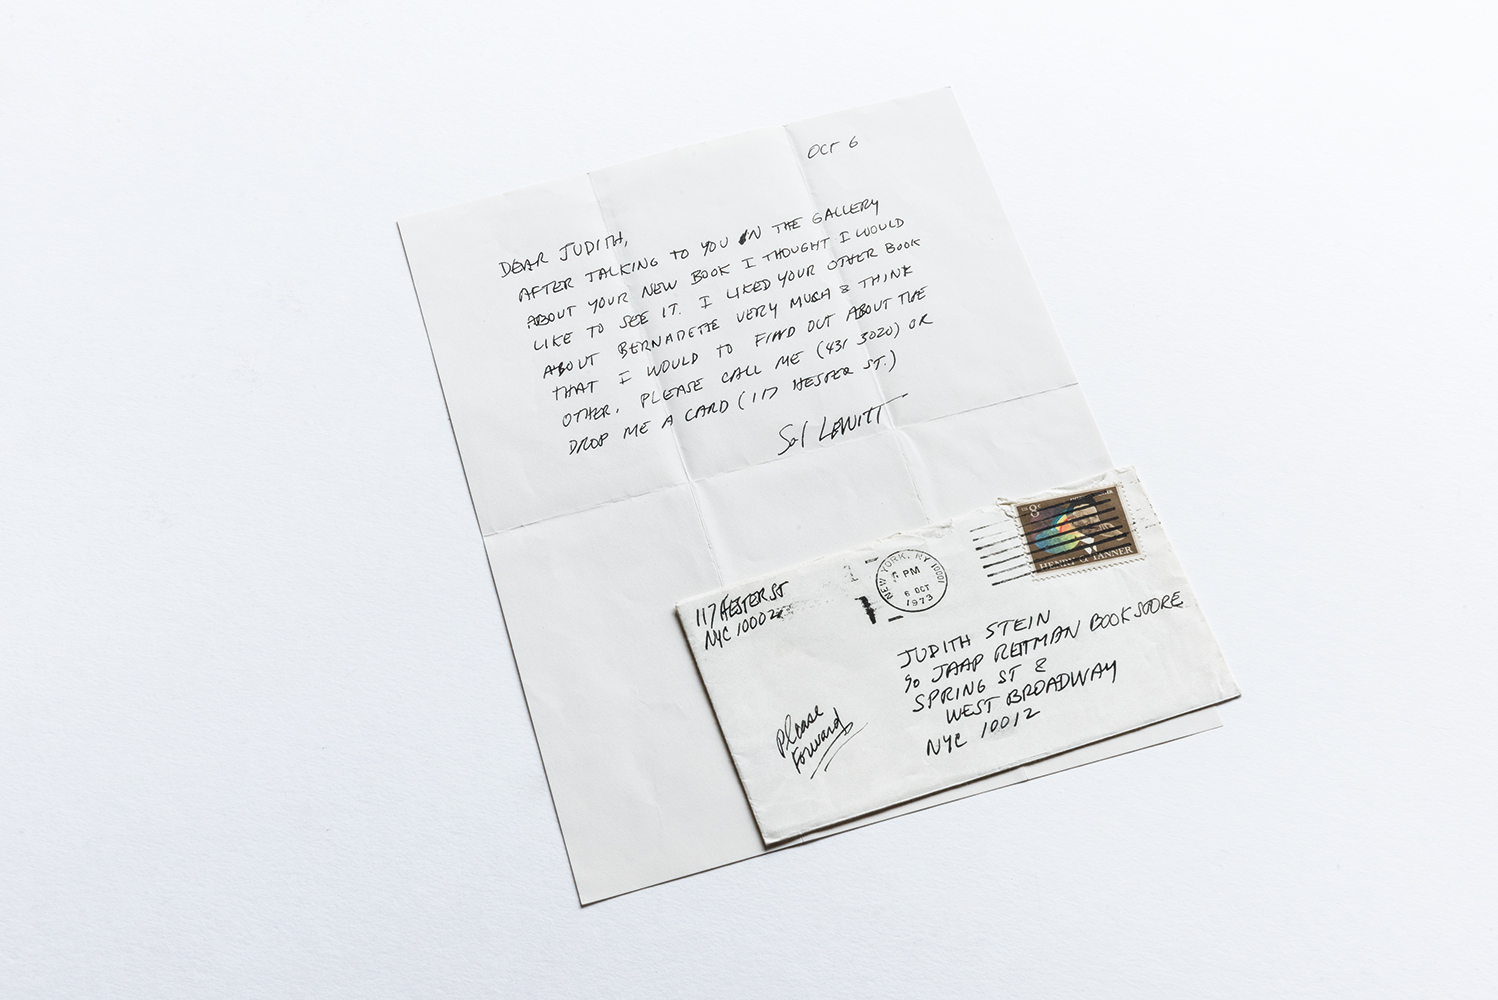 OCT 6
DEAR JUDITH,
AFTER TALKING TO YOU IN THE GALLERY
ABOUT YOUR NEW BOOK I THOUGHT I WOULD
LIKE TO SEE IT. I LIKED YOUR OTHER BOOK
ABOUT BERNADETTE VERY MUCH & THINK
THAT I WOULD TO FIND OUT ABOUT THE
OTHER. PLEASE CALL ME (431 3020) OR
DROP ME A CARD (117 HESTER ST.)
Sol LEWITT
117 HESTER ST
NYC 10002
NEW YORK, NY 10001
PM
6 OCT
1973
8c
HENRY O. TANNER
JUDITH STEIN
c/o JAAP RIETMAN BOOKSTORE
SPRING ST &
WEST BROADWAY
NYC 10012
Please
Forward